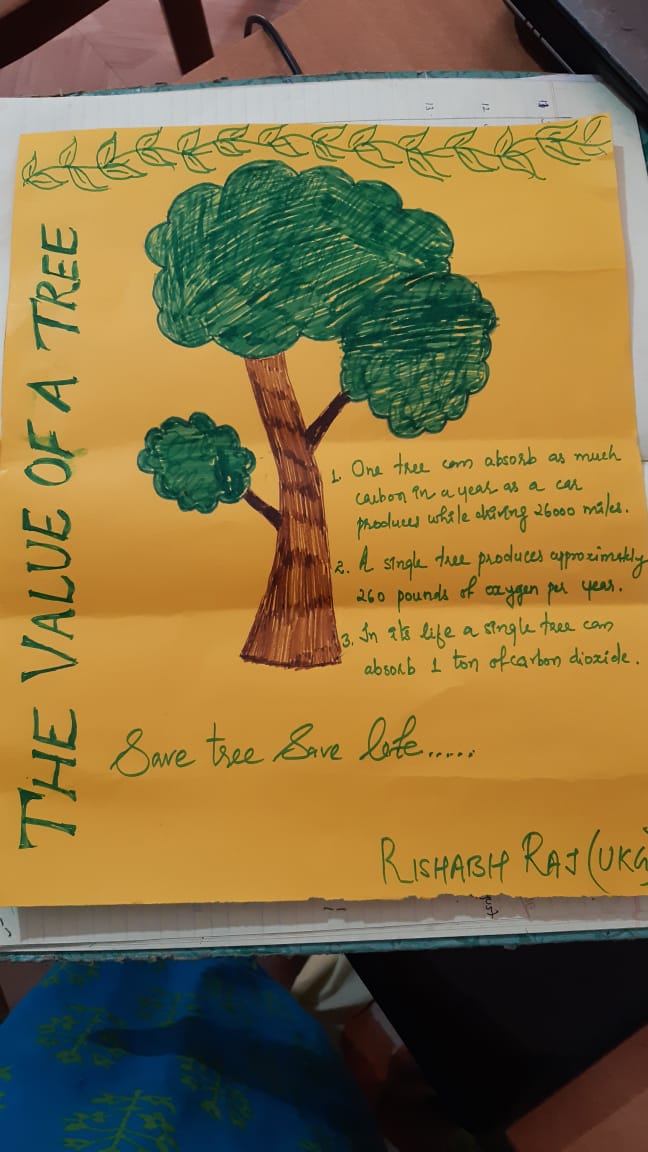 THE VALUE OF A TREE
1. One tree can absorb as much
carbon in a year as a car
produces while driving 26000 miles.
2. A single tree produces approximately
260 pounds of oxygen per year.
3. In its life a single tree can
absorb 1 ton of carbon dioxide.
Save tree Save life.....
RISHABH RAJ (UKG)